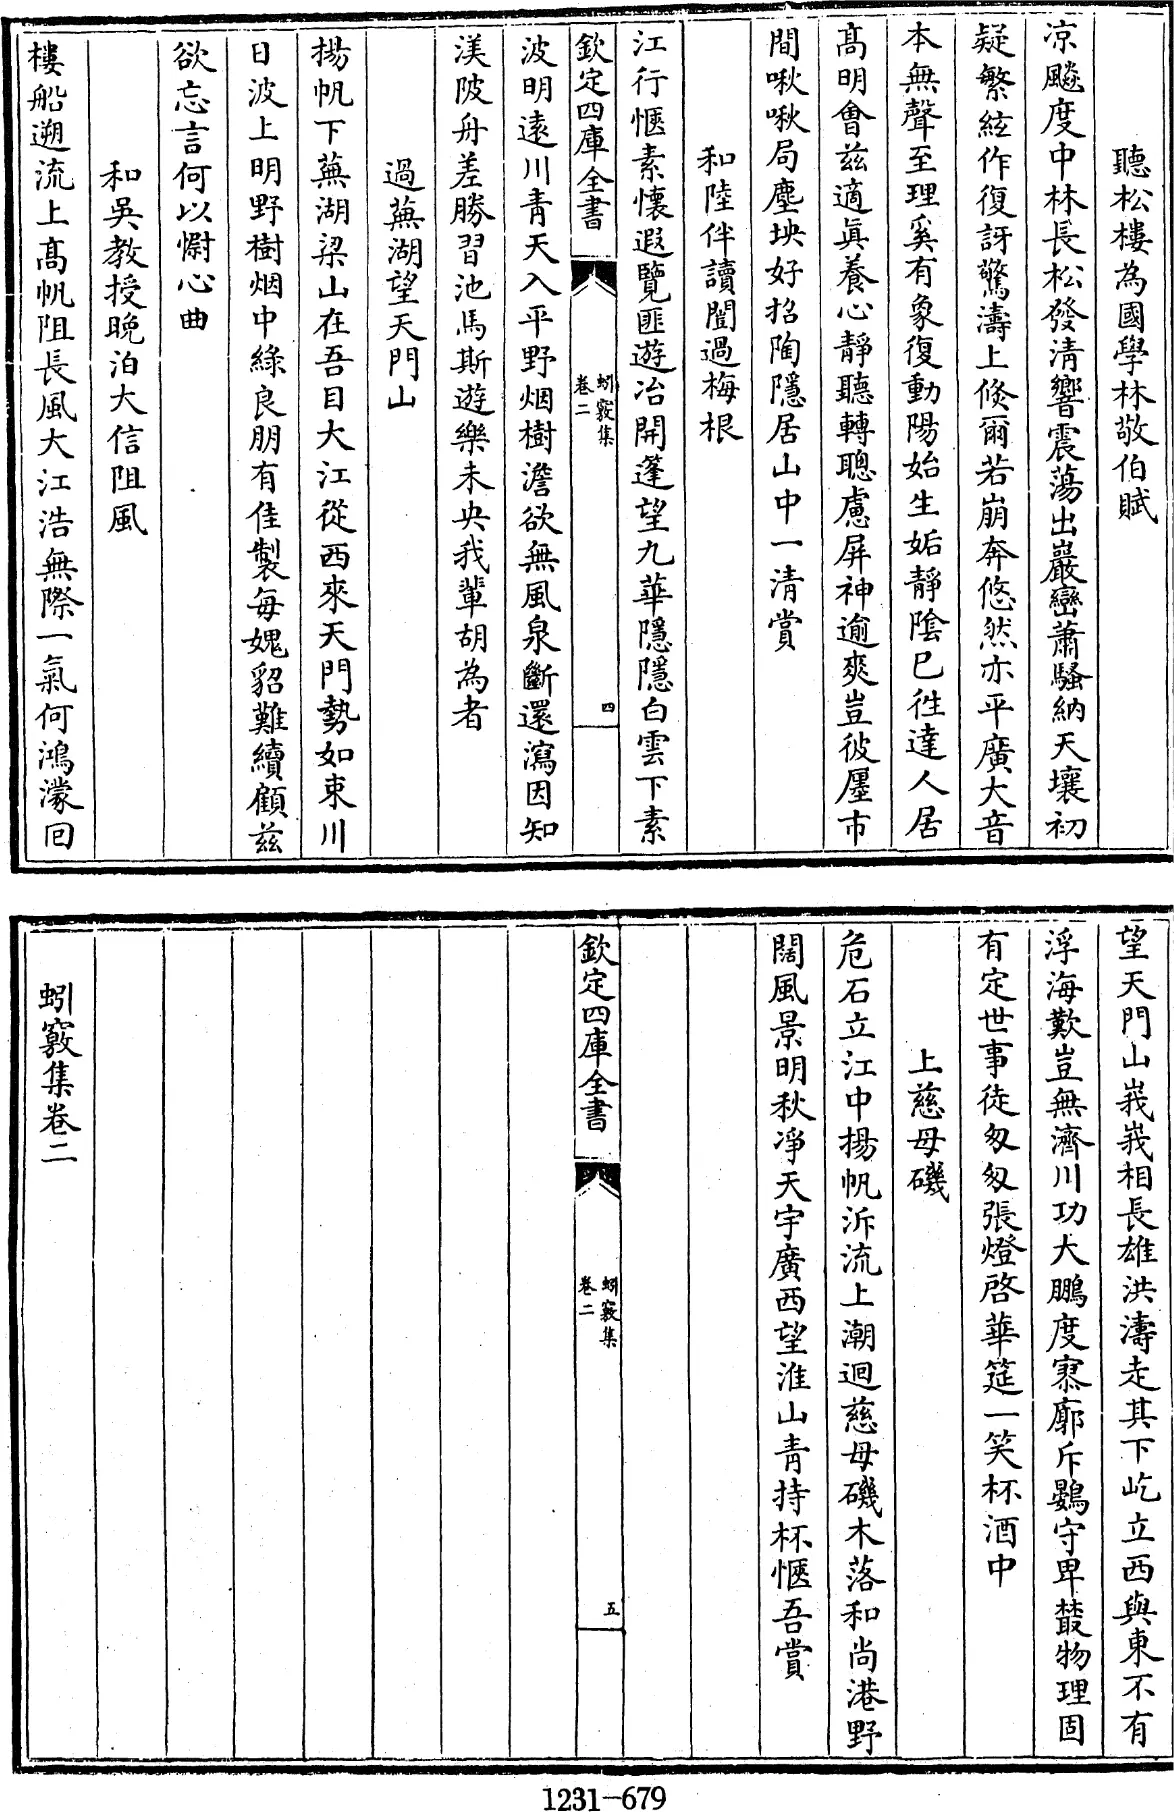 聽松樓為國學林敬伯賦
凉飈度中林長松發清響震蕩出巖巒蕭騷納天壤初
疑繁絃作復訝驚濤上倐爾若崩奔悠然亦平廣大音
本無聲至理奚有象復動陽始生姤靜陰已徃達人居
髙明會兹適眞養心靜聽轉聰慮屏神逾爽豈彼㕓市
間啾啾局塵坱好招陶隱居山中一清賞
和陸伴讀闓過梅根
江行愜素懷遐覽匪遊冶開篷望九華隱隱白雲下素
欽定四庫全書
蚓竅集
卷二
四
波明遠川青天入平野烟樹澹欲無風泉斷還瀉因知
渼陂舟差勝習池馬斯遊樂未央我輩胡為者
過蕪湖望天門山
揚帆下蕪湖梁山在吾目大江從西來天門勢如束川
日波上明野樹烟中綠良朋有佳製每媿貂難續顧兹
欲忘言何以慰心曲
和吳教授晚泊大信阻風
樓船遡流上髙帆阻長風大江浩無際一氣何鴻濛囘
望天門山峩峩相長雄洪濤走其下屹立西與東不有
浮海歎豈無濟川功大鵬度寥廓斥鷃守卑藂物理固
有定世事徒匆匆張燈啓華筵一笑杯酒中
上慈母磯
危石立江中揚帆泝流上潮迴慈母磯木落和尚港野
闊風景明秋凈天宇廣西望淮山青持杯愜吾賞
欽定四庫全書
蚓竅集
卷二
五
蚓竅集卷二
1231-679